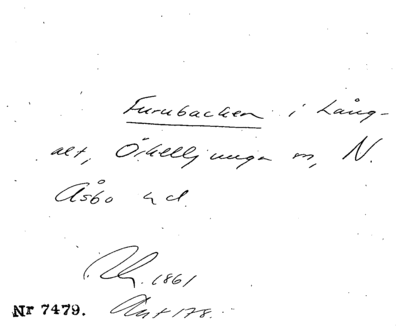 Furubacken i Lång-
alt, Örkelljunga sn, N.
Åsbo hd.
1861
Nr 7479.